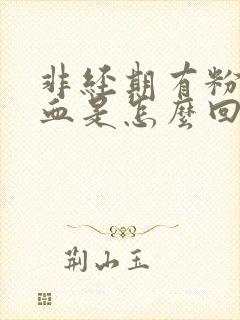 非经期有粉
血是怎麽回
荆山玉